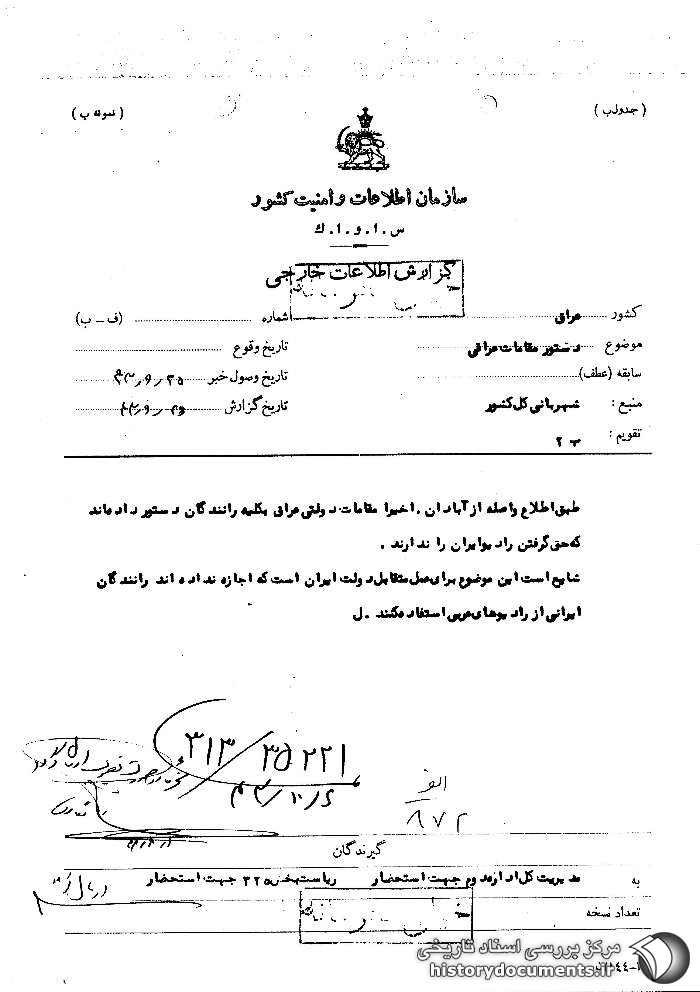 ( جدول ب )
( نمونه ب )
سازمان اطلاعات و امنیت کشور
س . ا . و . ا . ك
گزارش اطلاعات خارجی
کشور عراق
شماره (ف - ب)
موضوع دستور مقامات عراقی
تاریخ وقوع
سابقه (عطف)
تاریخ وصول خبر ۴۳٫۹٫۲۵
منبع : شهربانی کل کشور
تاریخ گزارش
تقویم : ب ۲
طبق اطلاع واصله از آبادان ، اخیرا مقامات دولتی عراق بکلیه رانندگان دستور داده‌اند
که حق گرفتن رادیو ایران را ندارند .
شایع است این موضوع برای عمل متقابل دولت ایران است که اجازه نداده اند رانندگان
ایرانی از رادیوهای عربی استفاده کنند . ل
۳۱۳/۳۵۲۲۱
۴۳/۱۰/۶
الف
۸۷۲
گیرندگان
به مدیریت کل اداره دوم جهت استحضار ریاست بخش ۳۲۵ جهت استحضار
تعداد نسخه
مرکز بررسی اسناد تاریخی
historydocuments.ir